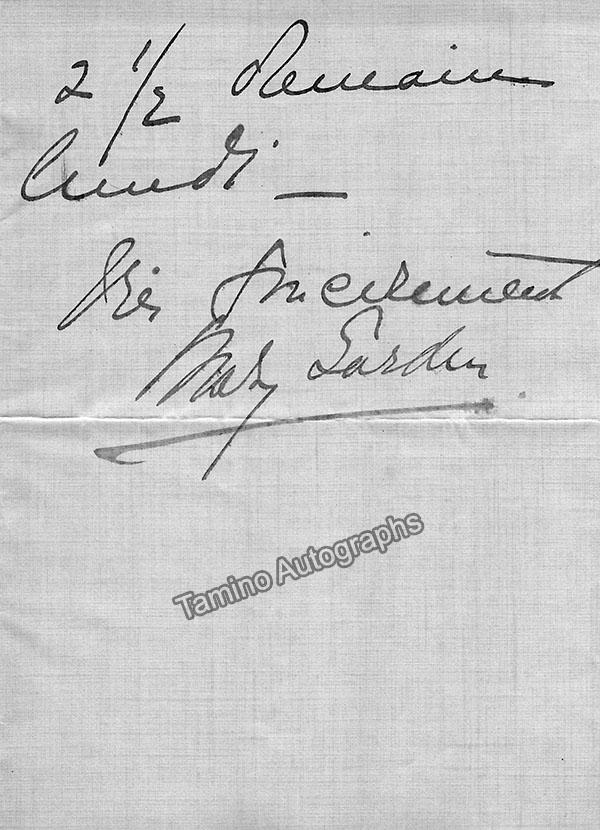 2 1/2 Demain
lundi —
Très sincèrement
Mary Garden
Tamino Autographs